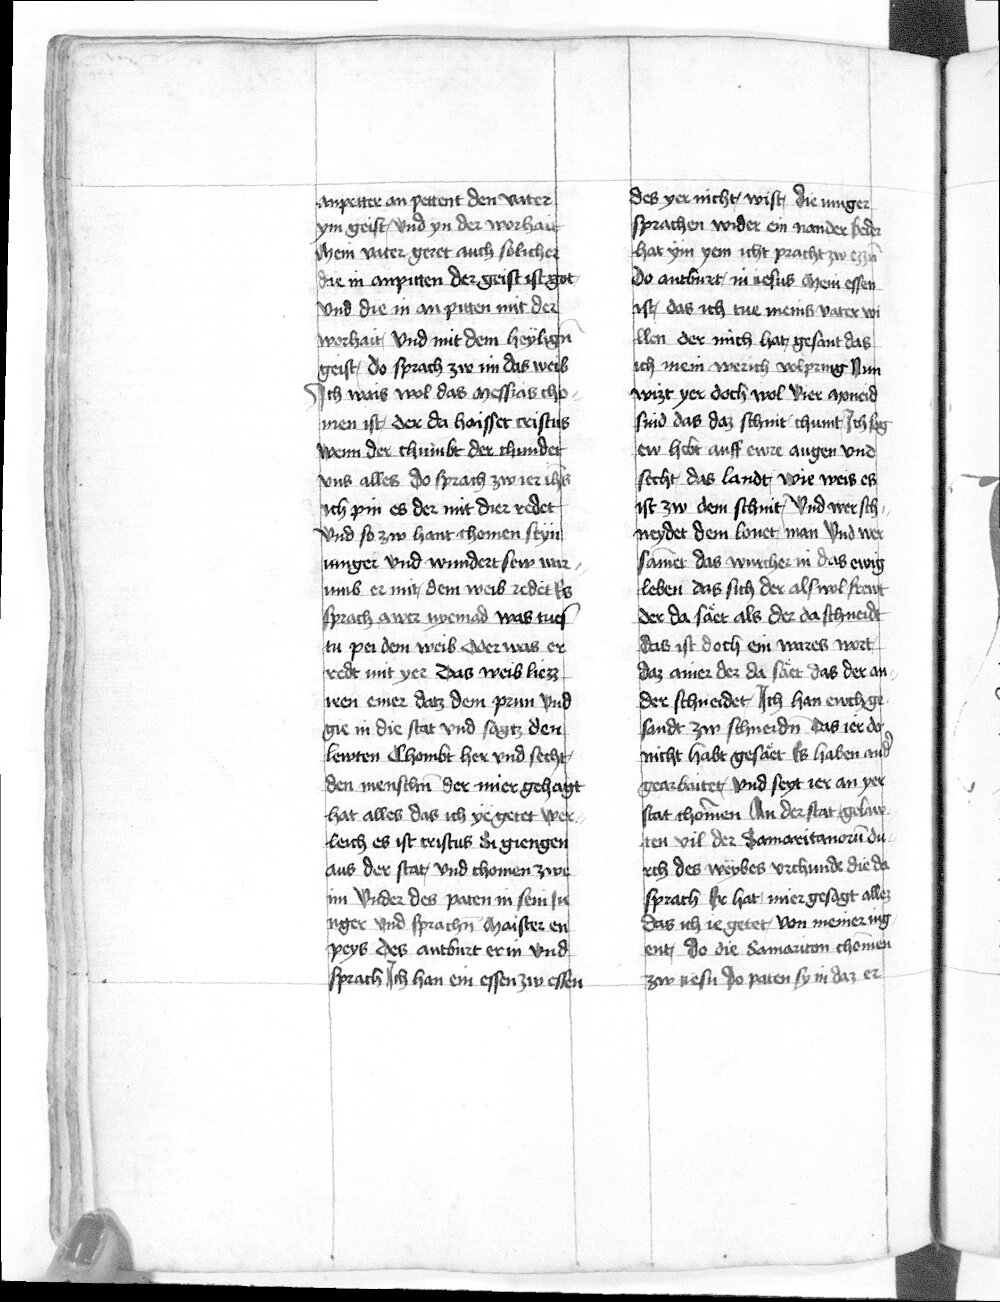 anpetter an pettent den vater
ym geist Vnd yn der worhait
Mein vater geret auch solicher
die in anpitten der geist ist got
Vnd die in an pitten mit der
worhait Vnd mit dem heyligē
geist Do sprach zw im das weib
Ich wais wol das Messias cho-
men ist der da haisset cristus
wenn der chumbt der chundet
vns alles Do sprach zw ier ih̄s
ich pin es der mit dier redet
Vnd so zw hant chomen seyn
iunger Vnd wundert sew war-
umb er mit dem weib redet Es
sprach awer nyemād was tues
tu pei dem weib Oder was er
redt mit yer Das weib liezz
iren emer datz dem prun Vnd
gie in die stat vnd sagtz den
lewten Chombt her vnd secht
den menschn̄ der mier gesagt
hat alles das ich ye getet wer-
leich es ist cristus Si giengen
aus der stat Vnd chomen zwe
im Vnder des paten in sein iu
nger Vnd sprachn̄ Maister en
peys Des antburt er in Vnd
sprach Ich han ein essen zw essen
des yer nicht wist Die iunger
sprachen wider ein nander
hat ym yem icht pracht zw ezzn̄
Do antburt in iesus Mein essen
ist das ich tue meins vater wi
llen der mich hat gesant das
ich mein werich volpring Nun
wizt yer doch wol Vier moneid
sind das daz schnit chumt Ich sag
ew hebt auff ewre augen vnd
secht das landt wie weis es
ist zw dem schnit Vnd wer sch-
neydet dem lonet man Vnd wer
sāmet das wucher in das ewig
leben das sich der als wol frewt
der da säet als der da schneidt
Das ist doch ein wares wort
daz ainer der da säet das der an-
der schneidet Ich han ewch ge
sandt zw schneidn̄ Das ier do
nicht habt gesäet Es haben and̄
gearbaitet Vnd seyt ier an yer
stat chōmen An der stat gelaw-
ten vil der Samaritanorū du-
rch des weybes vrchunde die da
sprach Er hat mier gesagt allez
das ich ie getet Von meiner iug
ent Do die Samariton chōmen
zw iesu Do paten sy in daz er